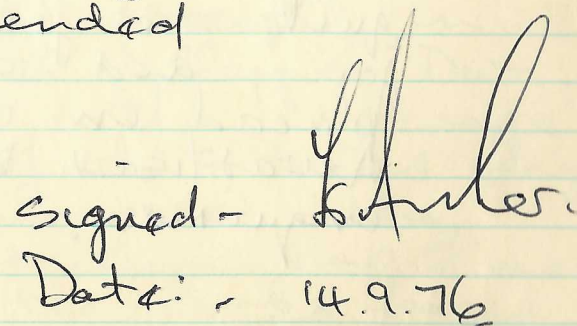 ended
Signed -
Date: - 14.9.76